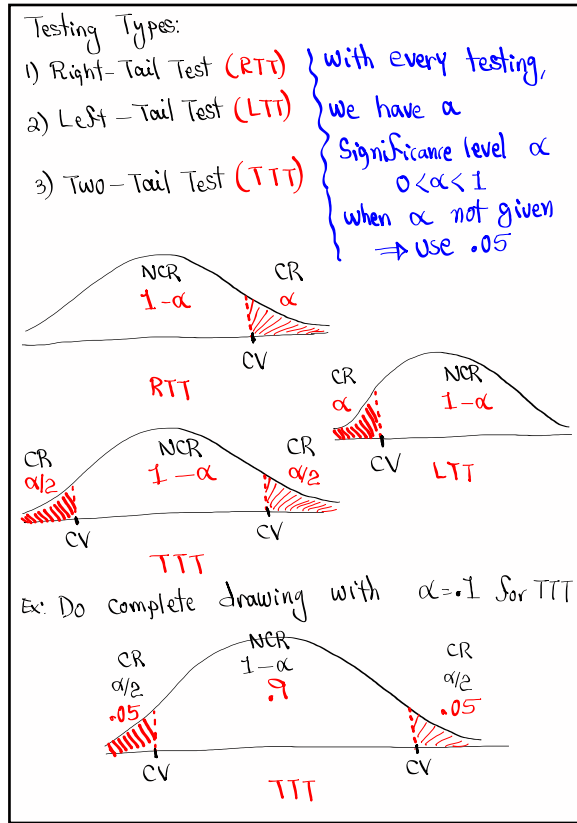 Testing Types:
1) Right-Tail Test (RTT)
2) Left-Tail Test (LTT)
3) Two-Tail Test (TTT)
with every testing,
we have a
Significance level α
0<α<1
when α not given
⇒ use .05
NCR
1-α
CR
α
CV
RTT
CR
α
NCR
1-α
CV
LTT
CR
α/2
NCR
1-α
CR
α/2
CV
CV
TTT
Ex: Do complete drawing with α=.1 for TTT
CR
α/2
.05
NCR
1-α
.9
CR
α/2
.05
CV
CV
TTT